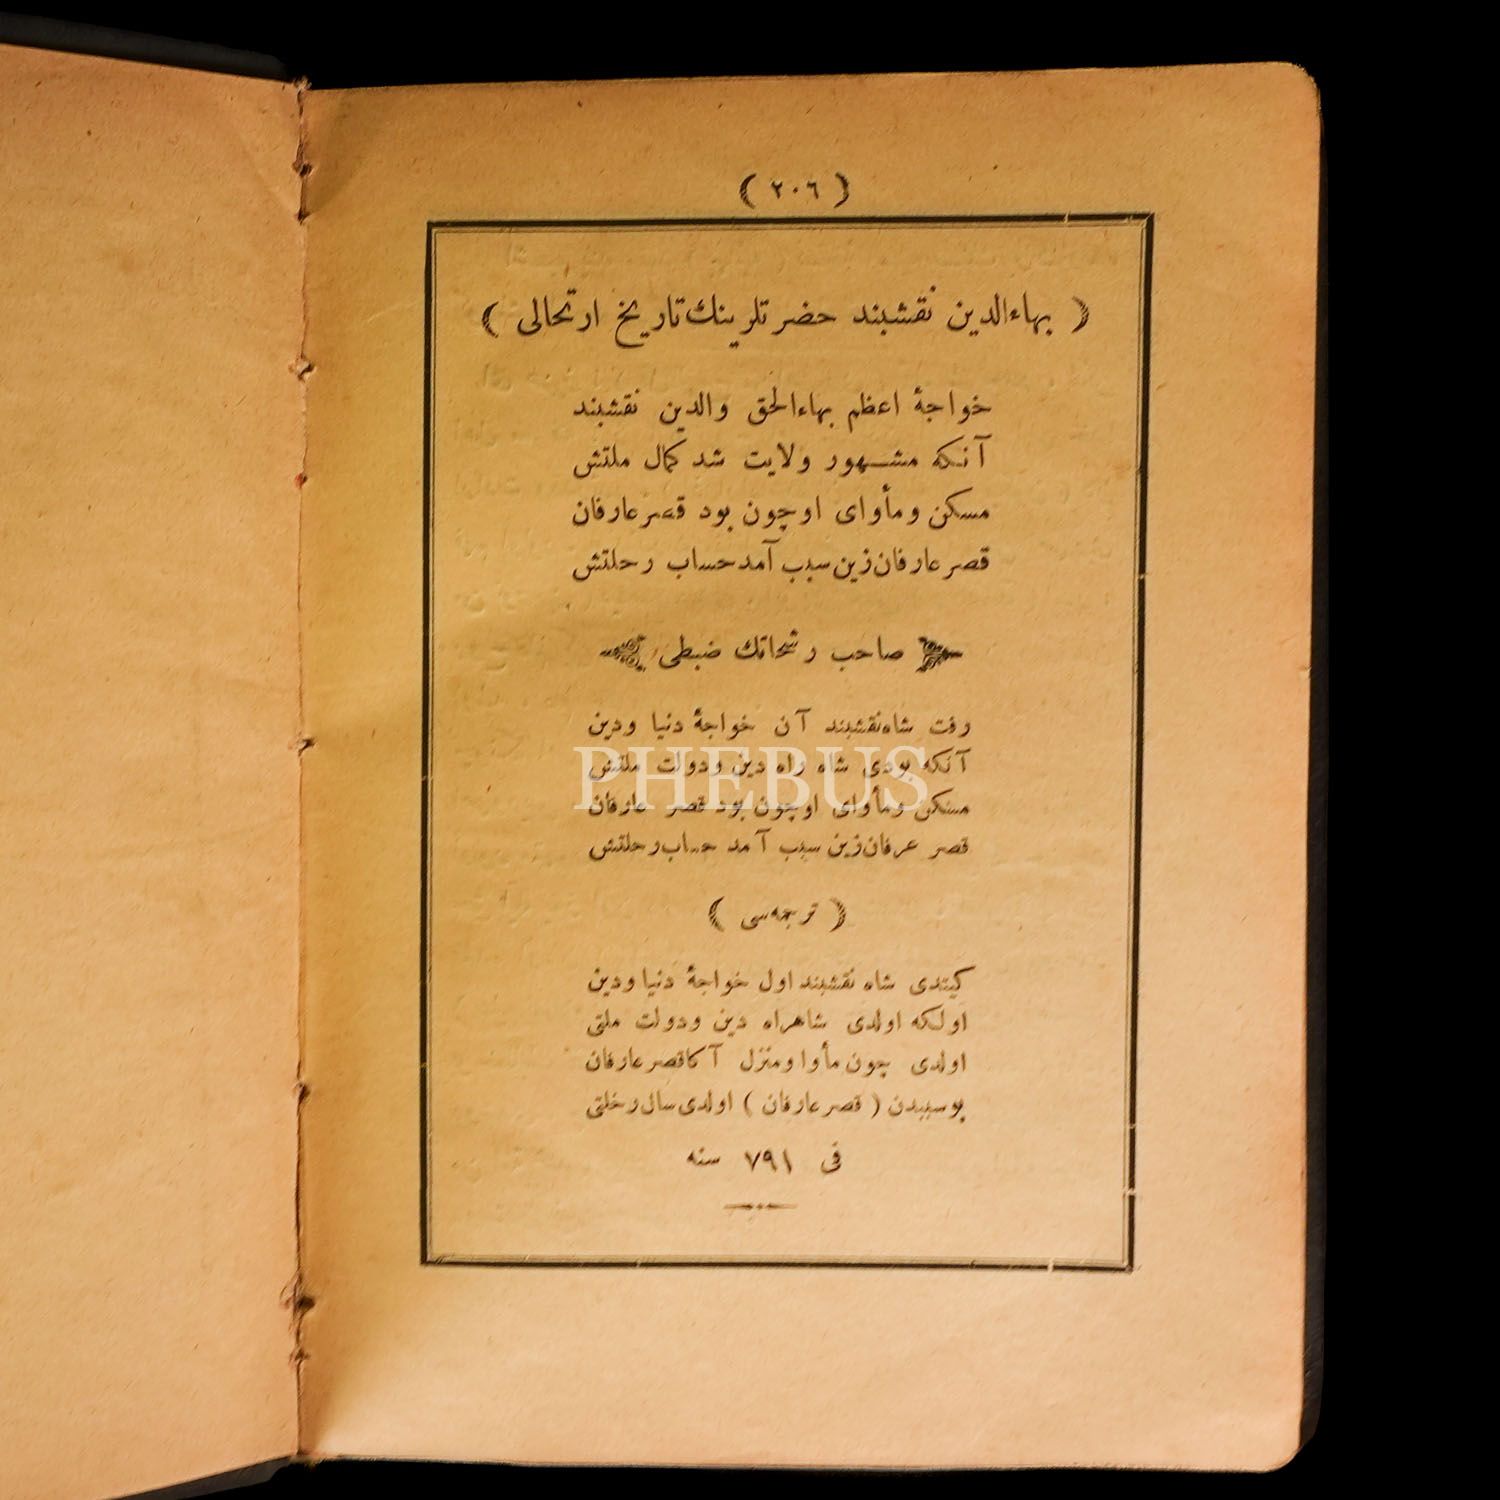 ( ٢٠٦ )
( بهاءالدین نقشبند حضرتلرینك تاریخ ارتحالی )
خواجۀ اعظم بهاءالحق والدین نقشبند
آنکه مشهور ولایت شد کمال ملتش
مسکن ومأوای اوچون بود قصر عارفان
قصر عارفان زین سبب آمد حساب رحلتش
صاحب رشحاتك ضبطی
رفت شاه نقشبند آن خواجۀ دنیا ودین
آنکه بودی شاه راه دین ودولت ملتش
مسکن ومأوای اوچون بود قصر عارفان
قصر عرفان زین سبب آمد حساب رحلتش
PHEBUS
( ترجمه‌سی )
کیتدی شاه نقشبند اول خواجۀ دنیا ودین
اولکه اولدی شاهراه دین ودولت ملتی
اولدی چون مأوا ومنزل آکا قصر عارفان
بوسببدن ( قصر عارفان ) اولدی سال رخلتی
فی ٧٩١ سنه